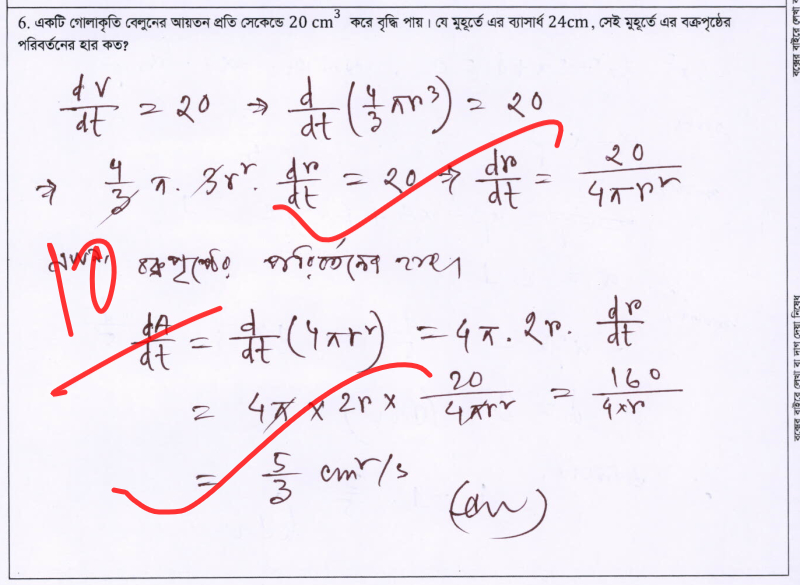 6. একটি গোলাকৃতি বেলুনের আয়তন প্রতি সেকেন্ডে 20 cm³ করে বৃদ্ধি পায়। যে মুহূর্তে এর ব্যাসার্ধ 24cm, সেই মুহূর্তে এর বক্রপৃষ্ঠের
পরিবর্তনের হার কত?
dV/dt = 20 ⇒ d/dt (4/3 πr³) = 20
⇒ 4/3 π. 3r². dr/dt = 20 ⇒ dr/dt = 20/4πr²
10
বক্রপৃষ্ঠের পরিবর্তনের হার।
dA/dt = d/dt (4πr²) = 4π. 2r. dr/dt
= 4π × 2r × 20/4πr² = 160/4×r
= 5/3 cm²/s
(Ans)